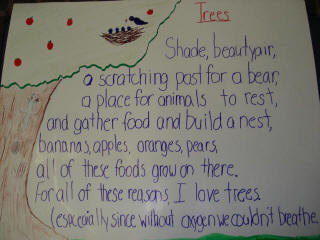 Trees
Shade, beauty, air,
a scratching post for a bear,
a place for animals to rest,
and gather food and build a nest,
bananas, apples, oranges, pears,
all of these foods grow on there.
For all of these reasons, I love trees.
(especially since without oxygen we couldn't breathe.